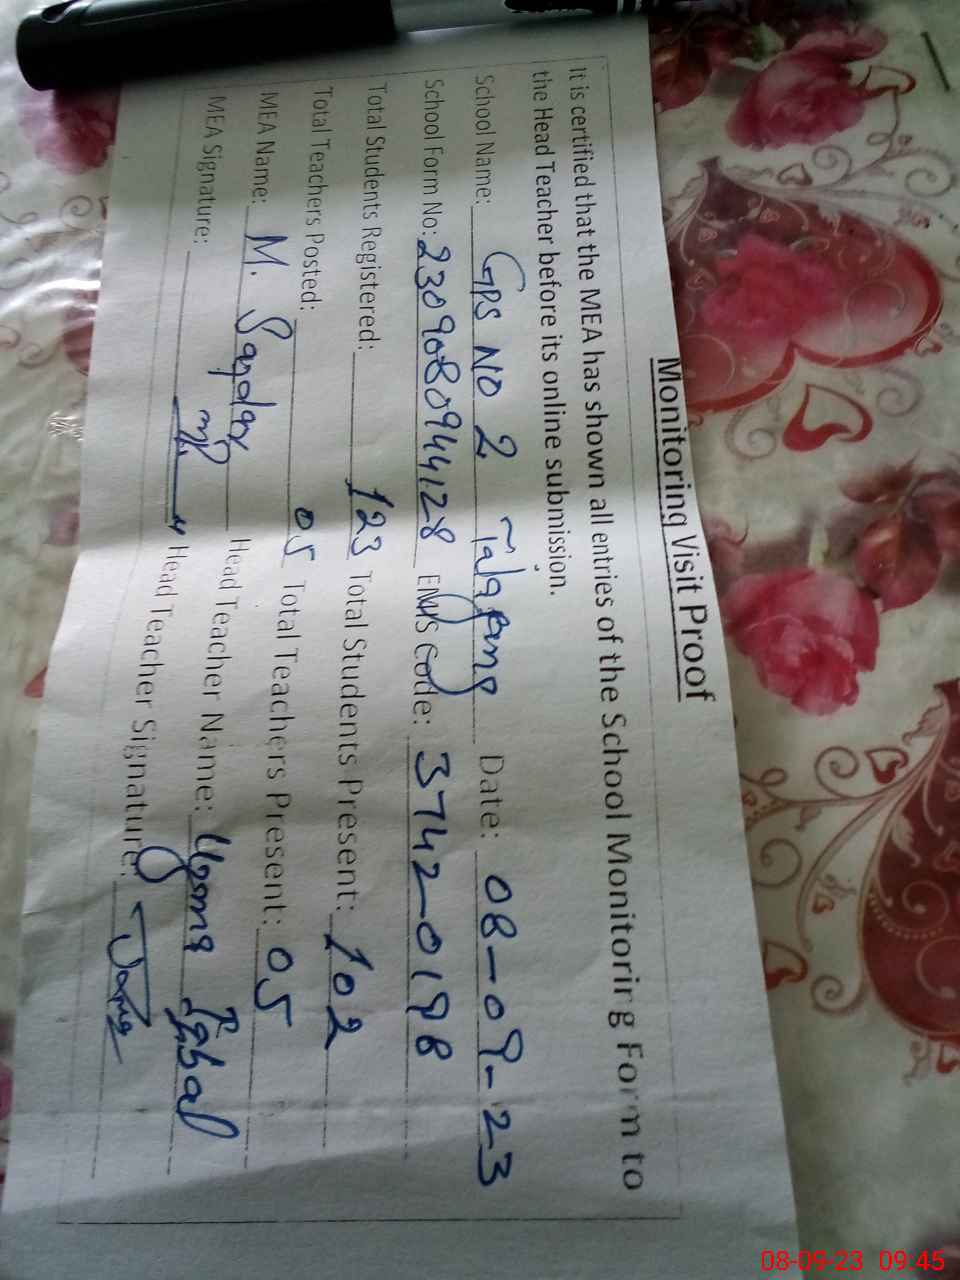 Monitoring Visit Proof
It is certified that the MEA has shown all entries of the School Monitoring Form to
the Head Teacher before its online submission.
School Name: GPS NO 2 Talagang Date: 08-09-23
School Form No: 2309080944128 EMIS Code: 37420198
Total Students Registered: 123 Total Students Present: 102
Total Teachers Posted: 05 Total Teachers Present: 05
MEA Name: M. Safdar Head Teacher Name: Uzma Iqbal
MEA Signature: Head Teacher Signature:
08-09-23 09:45